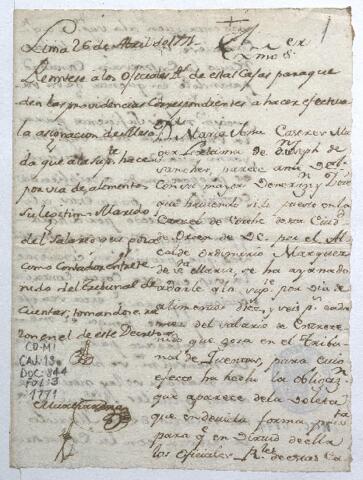 Lima 26 de Abril de 1771
Remitese a los Oficiales Rs de estas Cajas para que
den las providencias Correspondientes a hacer efectiva
la asignacion de Mesa
da que a la Supte hace
por via de alimentos
su legitimo Marido
del Salario que goza
como Contador entrete
nido del Tribunal de
Cuentas, tomandose ra
zon en el de este Decreto
Exmo Sr
Da Maria Josefa Caserez Mu
ger Lexitima de Dn Joseph de
Sanchez, parece ante
Con su mayor
que haviendo sido puesto en la
Carcel de Corte de esta Ciud
de Orden de VE. por el Al
calde Ordinario Marquez
de Sta Maria, se ha
a darle a la supte por via de
alimentos diez y seis ps cada
mes del salario de Entrete
nido que goza en el Tribu
nal de Quentas, para cuio
efecto ha hecho la obligazn
que aparece de la Boleta
que en devida forma
para q en virtud de ella
los oficiales Rles de estas Ca
CDM1
CAJ. 13
DOC. 844
FOL. 3
1771
1